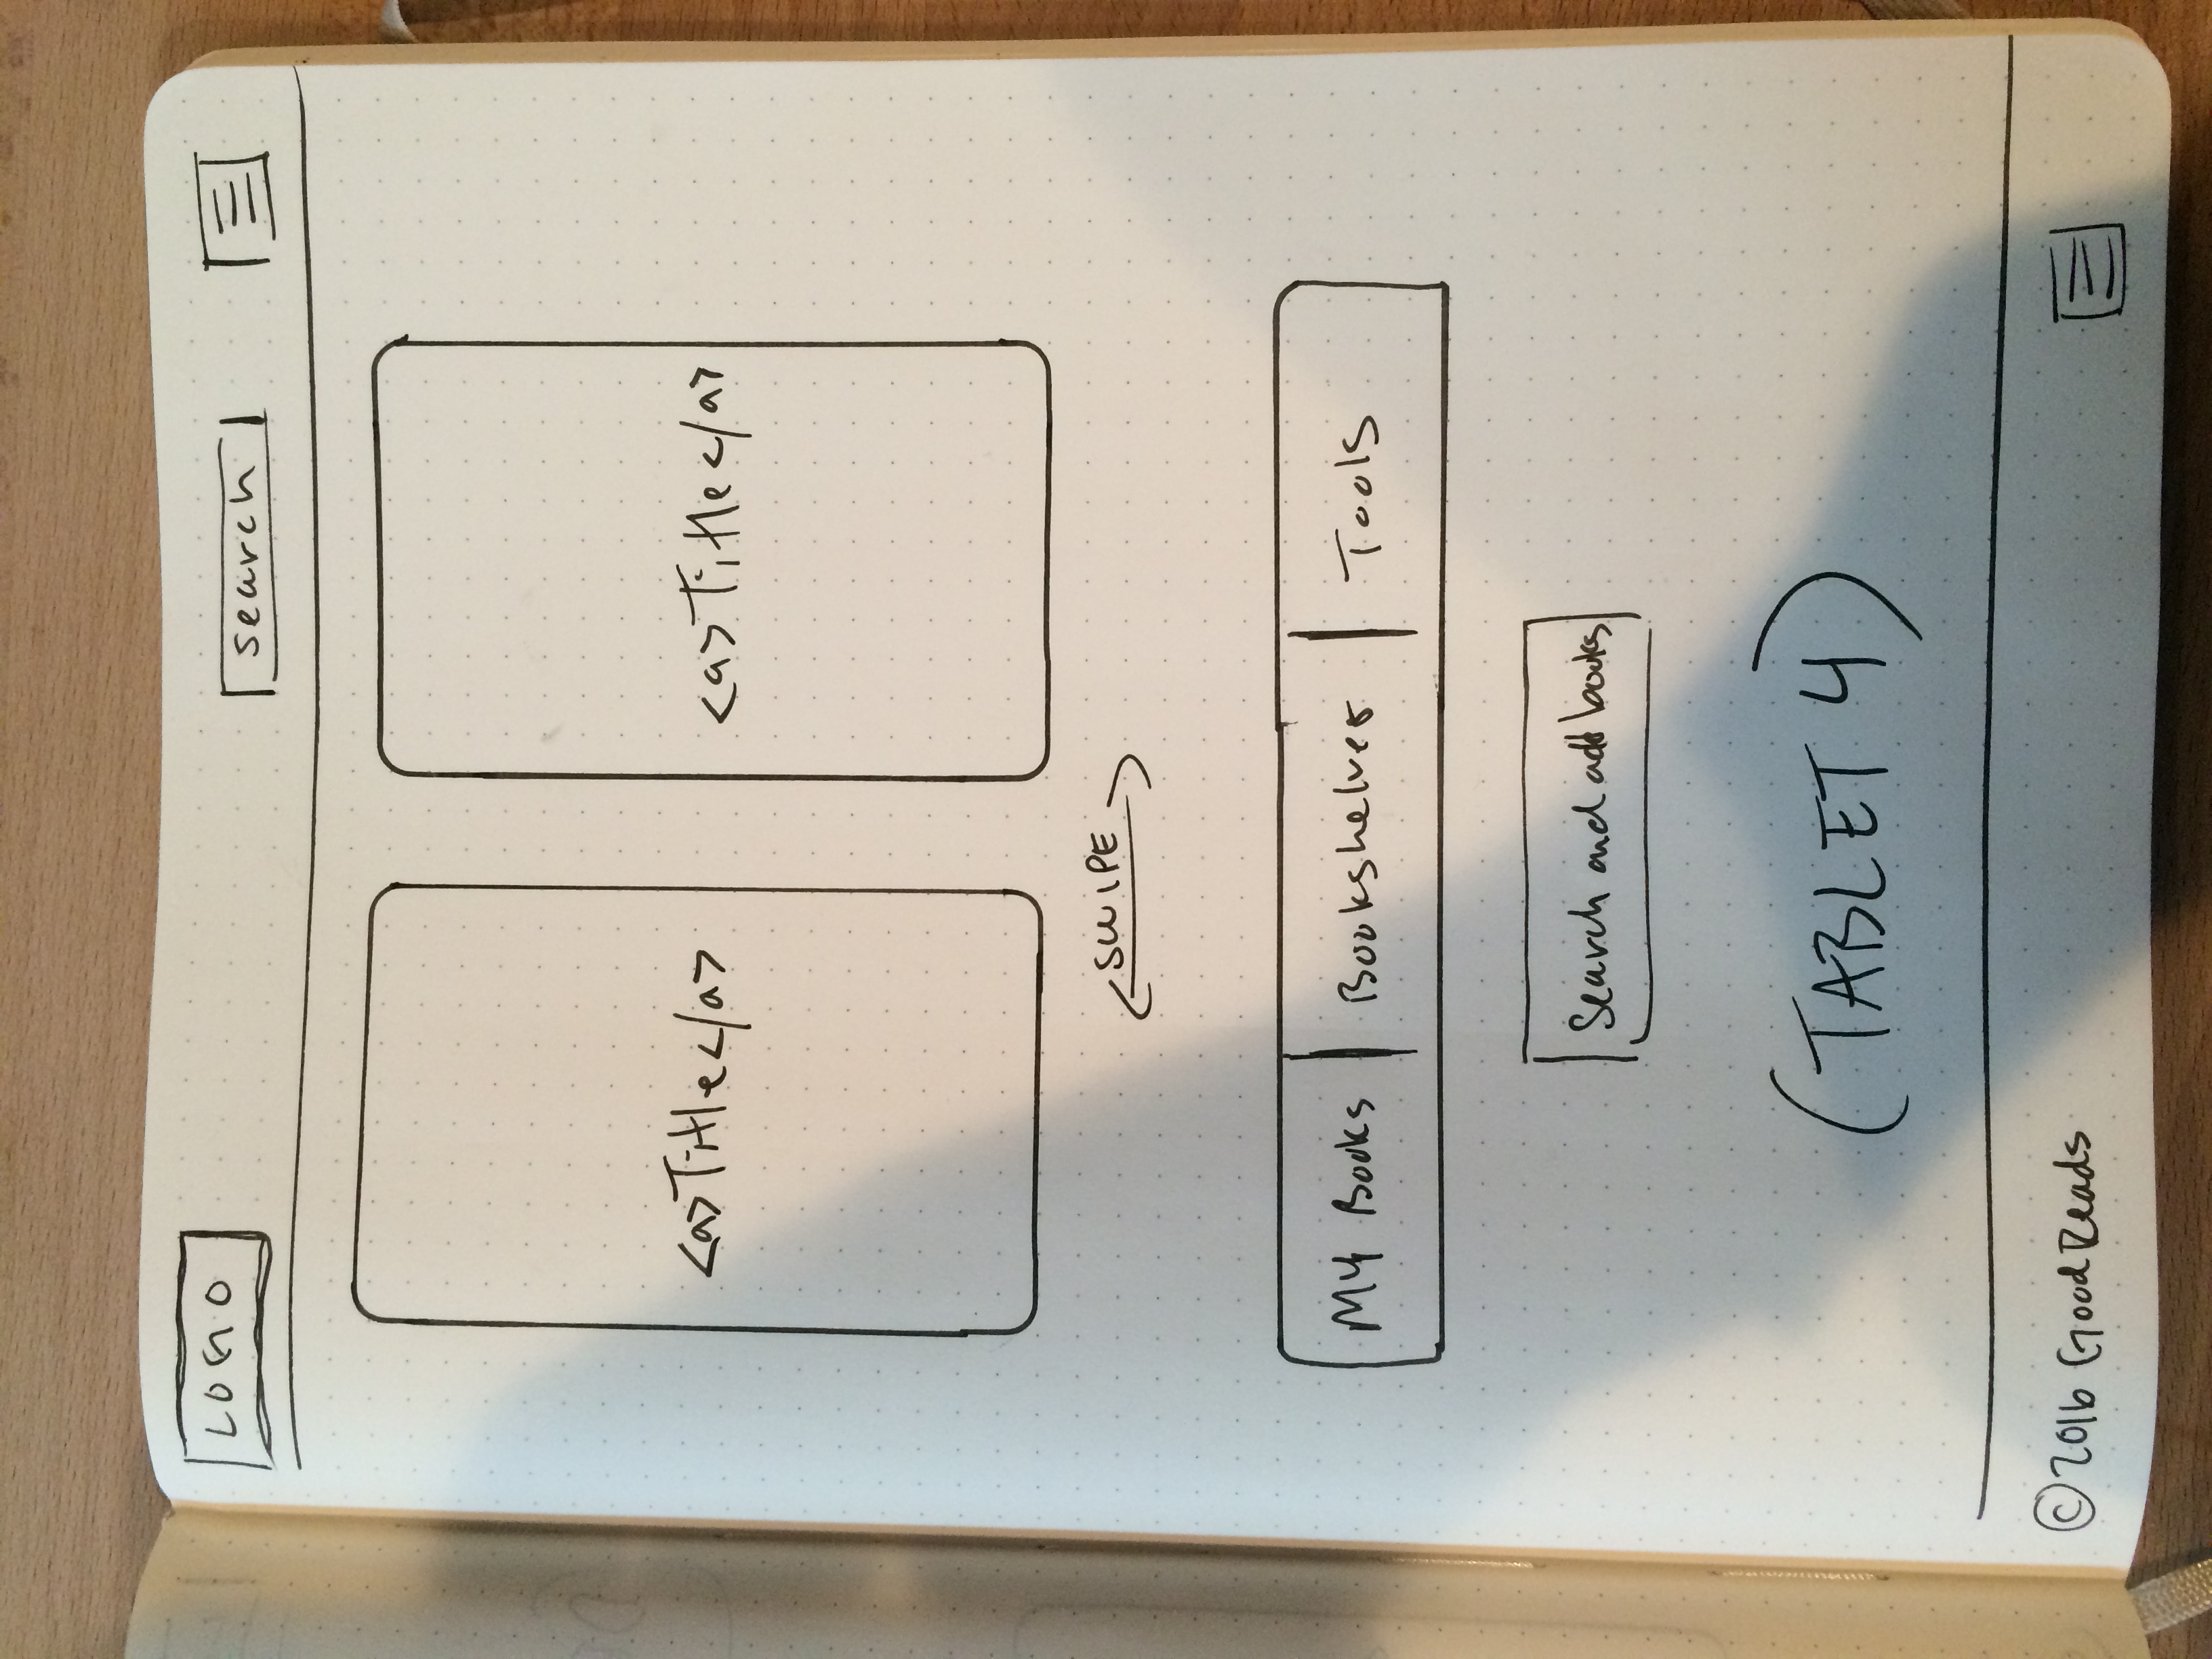 LOGO search
<a>Title</a> <a>Title</a>
SWIPE
My Books Bookshelves Tools
Search and add books
(TABLET 4)
© 2016 GoodReads